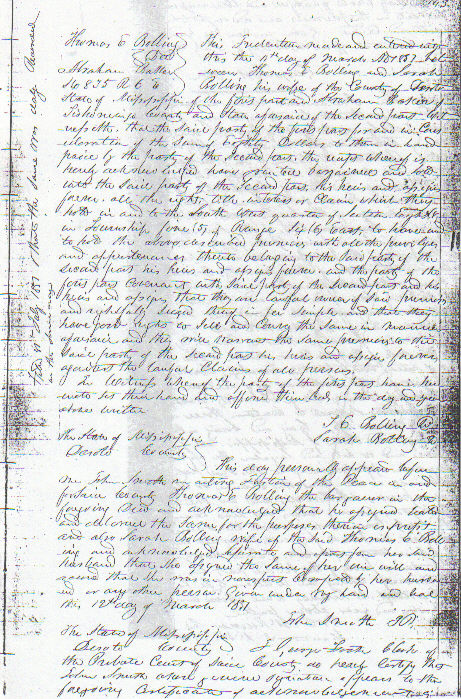 Thomas C Bolling This Indenture made and entered into
Deed this the 12th day of March AD 1851 bet
Abraham ween Thomas C Bolling and Sarah
Bolling his wife of the County of Desoto
State of Mississippi of the first part and Abraham
Tishomingo County and State aforesaid of the Second part Wit
nesseth, that the said party of the first part for and in Con
sideration of the Sum of Dollars to them in hand
paid by the party of the Second part, the receipt whereof is
hereby acknowledged have bargained and sold
unto the said party of the Second part, his heirs and assigns
forever, all the right, title interest or Claim which they
hold in and to the South West quarter of Section
in Township of Range East, to have and
to hold the above described premises with all the privileges
and appurtenances thereto belonging to the said party of the
Second part his heirs and assigns forever, and the party of the
first part Covenant with said party of the Second part and his
heirs and assigns, that they are lawful owners of said premises
and rightfully seized thereof in fee simple and that they
have good right to Sell and Convey the same in manner
aforesaid and they will warrant the same premises to the
said party of the Second part his heirs and assigns forever
against the lawful Claims of all persons.
In Witness whereof the party of the first part have here
unto set their hand and affixed their seals in the day and year
above written
T. C. Bolling
Sarah Bolling
The State of Mississippi
Desoto County
This day personally appeared before
me John Smith an acting Justice of the Peace in and
for said County Thomas C Bolling the bargainer in the
foregoing Deed and acknowledged that he signed sealed
and delivered the same for the purposes therein expressed
and also Sarah Bolling wife of the said Thomas C Boll
ing and acknowledged separate and apart from her said
husband that she signed the same of her own will and
accord that she was in no respect compelled by her husband
or any other person Given under my hand and seal
this 12th day of March 1851
John Smith J.P.
The State of Mississippi
Desoto County I George Clerk of
the Probate Court of said County do hereby Certify that
John Smith whose genuine signature appears to the
foregoing Certificate of acknowledgement